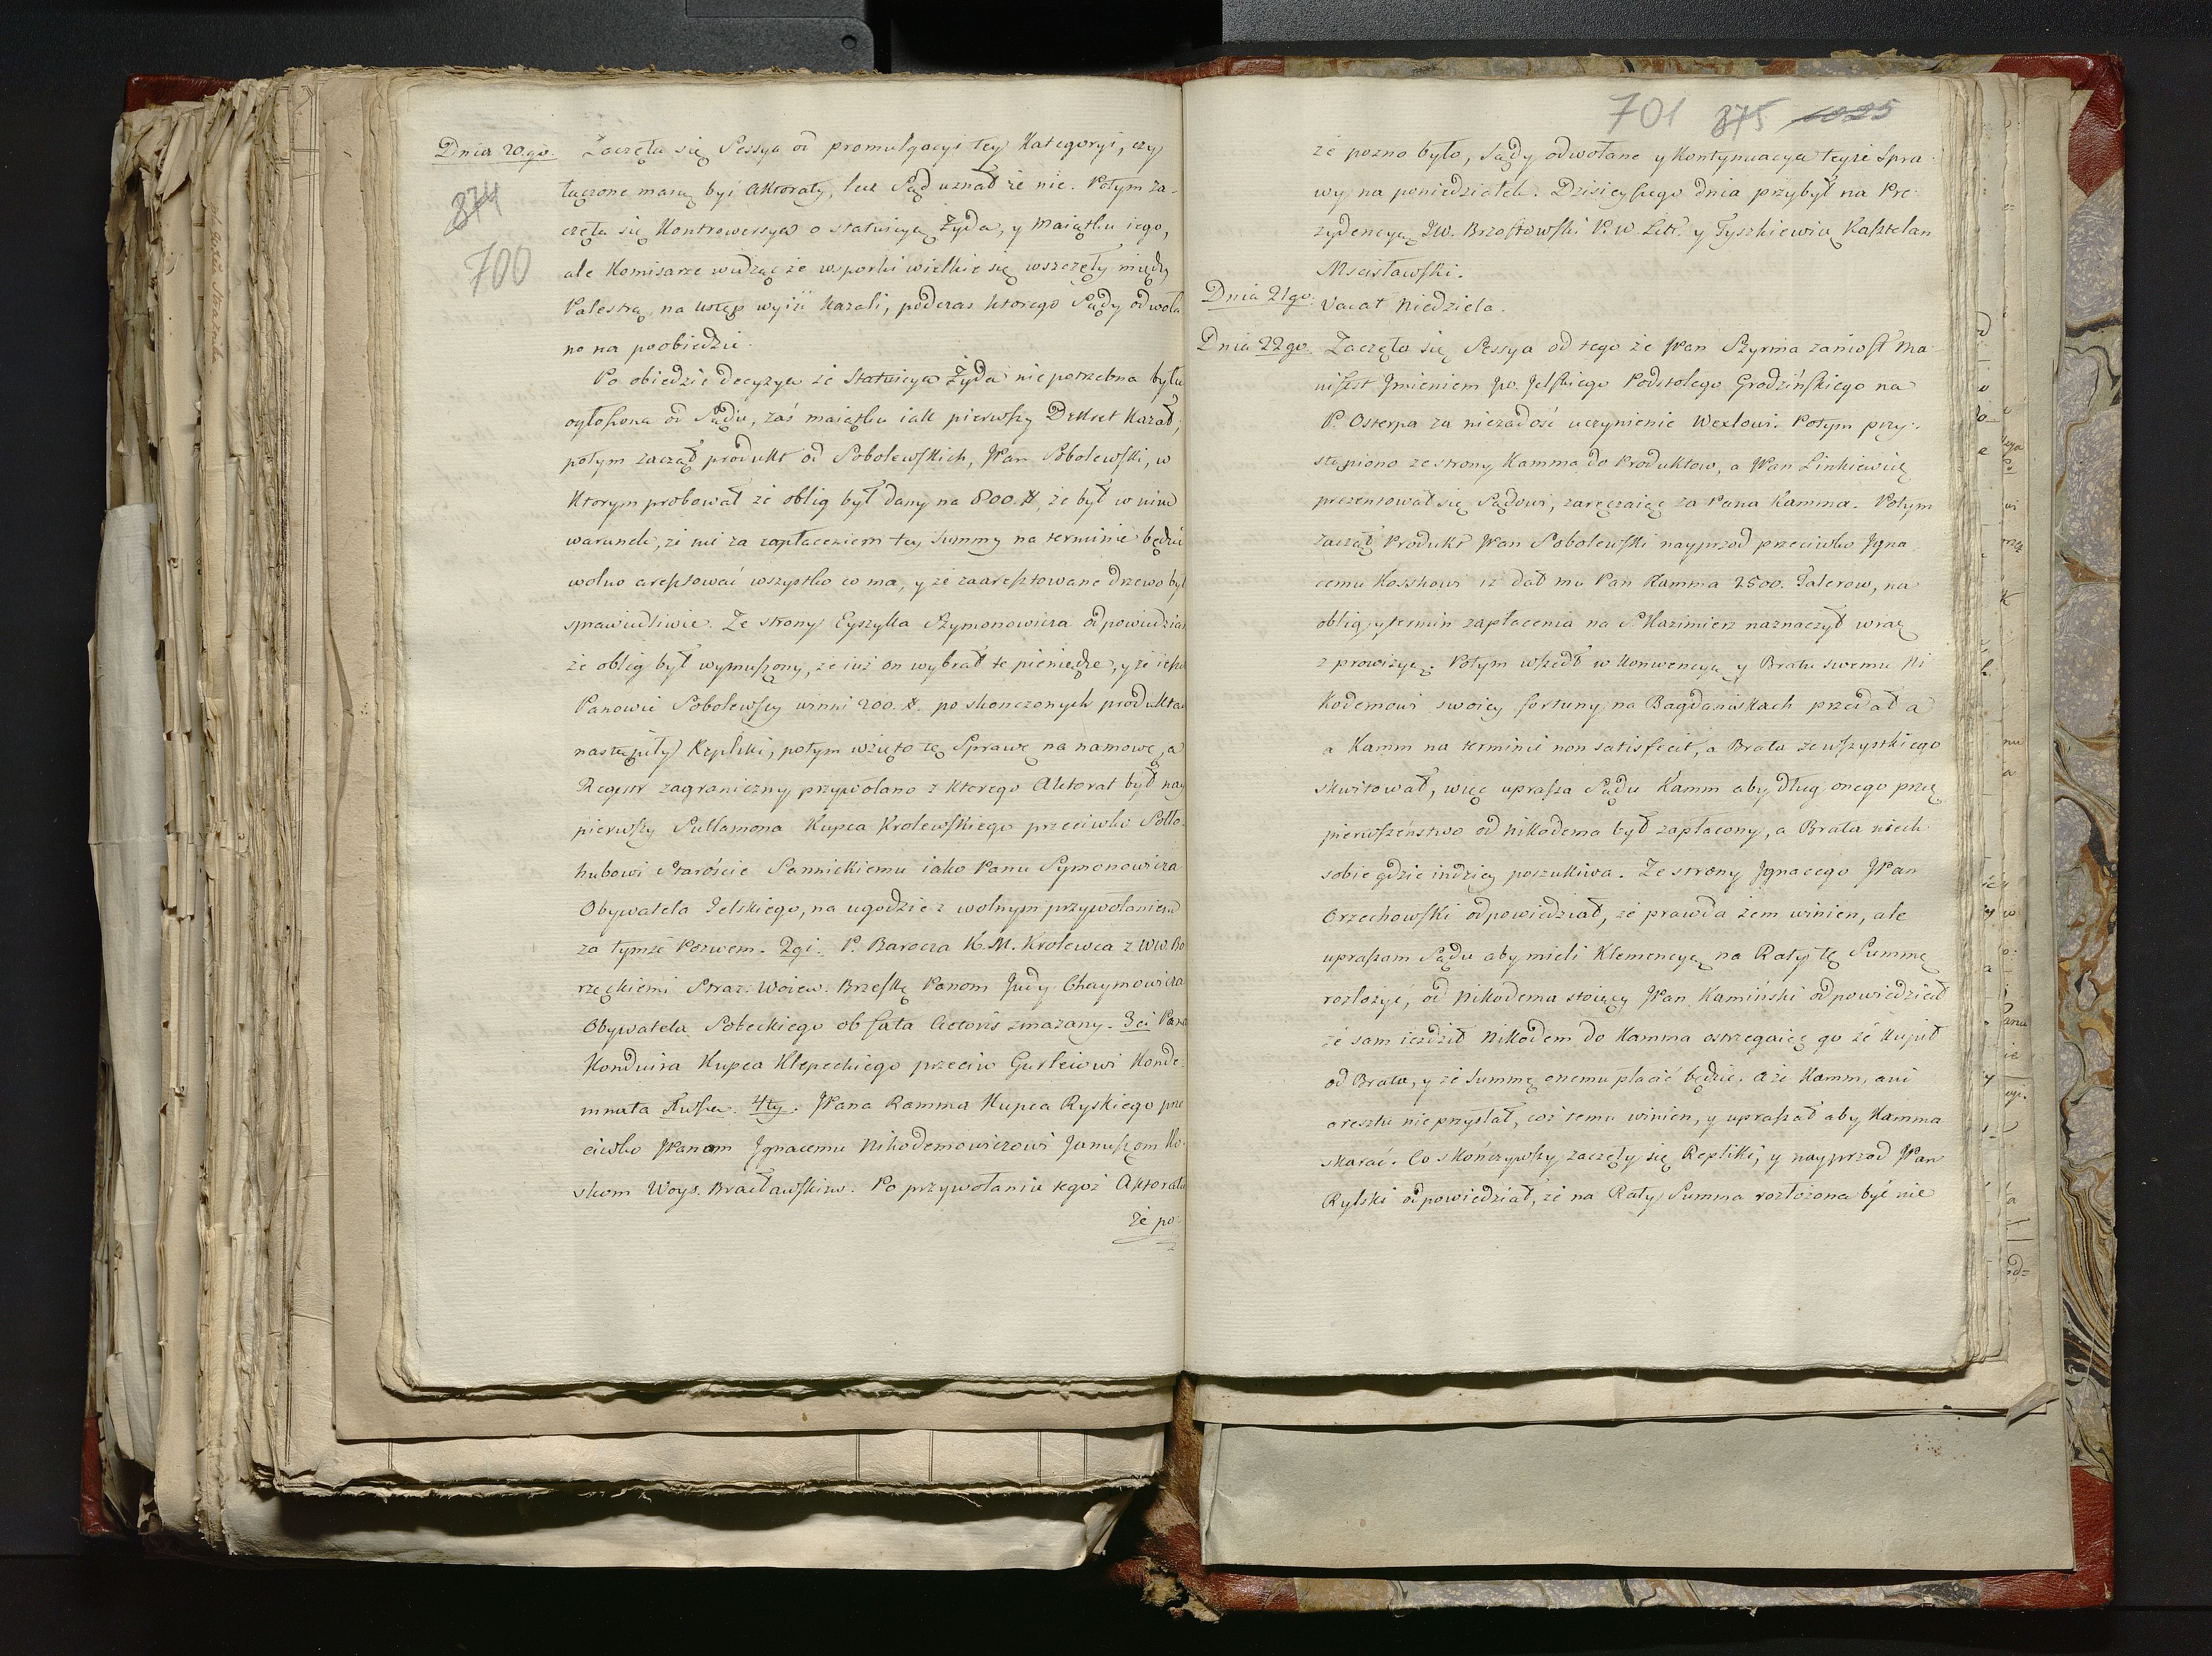 Dnia 20.go. Zaczęła się Sessya od promulgacyi tey Kategoryi, czy
874
700
łączone maią być aktoraty, lecz Sąd uznał że nie. Potym za-
częła się Kontrowersya o statuicyą Żyda, y maiątku iego,
ale Komisarze widząc że wsporki wielkie się wszczęły między
Palestrą, na ustęp wyiść kazali, podczas ktorego Sądy odwoła
no na poobiedzie.
Po obiedzie decyzya że Statuicya Żyda niepotrzebna była
ogłoszona od Sądu, zaś maiątku iak pierwszy Dekret kazał;
potym zaczął produkt od Sobolewskich, JPan Sobolewski, w
ktorym probował że oblig był dany na 800. #, że był w nim
warunek, że nie za zapłaceniem tey Summy na terminie będzie
wolno aresztować wszystko co ma, y że zaaresztowane drzewo był
sprawiedliwie. Ze strony Eyszyka Szymonowicza odpowiedział
że oblig był wymuszony, że iuż on wybrał te pieniądze, y że ieszcz
Panowie Sobolewscy winni 200. #. po skonczonych produktac
nastąpiły Repliki, potym wzięto tę Sprawę na namowę, a
Regestr zagraniczny przywołano z ktorego Aktorat był nay
pierwszy Sallamona Kupca Krolewskiego przeciwko Sołło-
hubowi Staroście Sannickiemu iako Panu Symonowicza
Obywatela Jelskiego, na ugodzie z wolnym przywołaniem
za tymże Pozwem. 2gi. P. Barocza K. M. Krolewca z WW. Bo
rzęckiemi Straż. Woiew. Brzeskę Panom Judy Chaymowicza
Obywatela Sobeckiego ob fata Actoris zmazany. 3ci Pana
Konduira Kupca Kłepeckiego przeciw Gurleiowi Konde-
mnata 4ty. JPana Kamma Kupca Ryskiego prze
ciwko JPanom Jgnacemu Nikodemowiczowi Januszom Ko-
skom Woys. Bracławskim. Po przywołaniu tegoż Aktoratu
że po-
701 875 1025
że pozno było, Sądy odwołane y Kontynuacya teyże Spra-
wy na poniedziałek. Dzisieyszego dnia przybył na Pre-
zydencyą JW. Brzostowski P. W. Litt. y Tyszkiewicz Kasztelan
Mscisławski.
Dnia 21go. Vacat Niedziela.
Dnia 22go. Zaczęła się Sessya od tego że JPan Szyrma zaniosł Ma-
nifest Jmieniem Jo. Jelskiego Podstolego Grodzińskiego na
P. Osterpa za niezadość uczynienie Wexlowi. Potym przy-
stąpiono ze strony Kamma do Produktow, a JPan Linkiewicz
prezentował się Sądowi, zaręczaiąc za Pana Kamma. Potym
zaczął Produkt JPan Sobolewski nayprzod przeciwko Jgna
cemu Kosskowi iż dał mu Pan Kamma 2500. Talerow, na
oblig, y termin zapłacenia na S. Kazimierz naznaczył wraz
z prowizyą. Potym wszedł w Konwencyą y Bratu swemu Ni
kodemowi swoiey fortuny na Bagdaniskach przedał a
a Kamm na terminie non satisfecit, a Brata ze wszystkiego
skwitował, więc uprasza Sądu Kamm aby dług onego przez
pierwszeństwo od Nikodema był zapłacony, a Brata niech
sobie gdzie indziey poszukiwa. Ze strony Jgnacego JPan
Orzechowski odpowiedział, że prawda żem winien, ale
upraszam Sądu aby mieli Klemencyą na Raty tę Summę
rozłożyć, od Nikodema stoiący JPan Kamiński odpowiedział
że sam ieździł Nikodem do Kamma ostrzegaiąc go że kupił
od Brata, y że Summę onemu płacić będzie. a że Kamm, ani
aresztu nie przysłał, coż temu winien, y upraszał aby Kamma
skarać. Co skończywszy zaczęły się Repliki, y nayprzod JPan
Rylski odpowiedział, że na Raty Summa rozłożona być nie